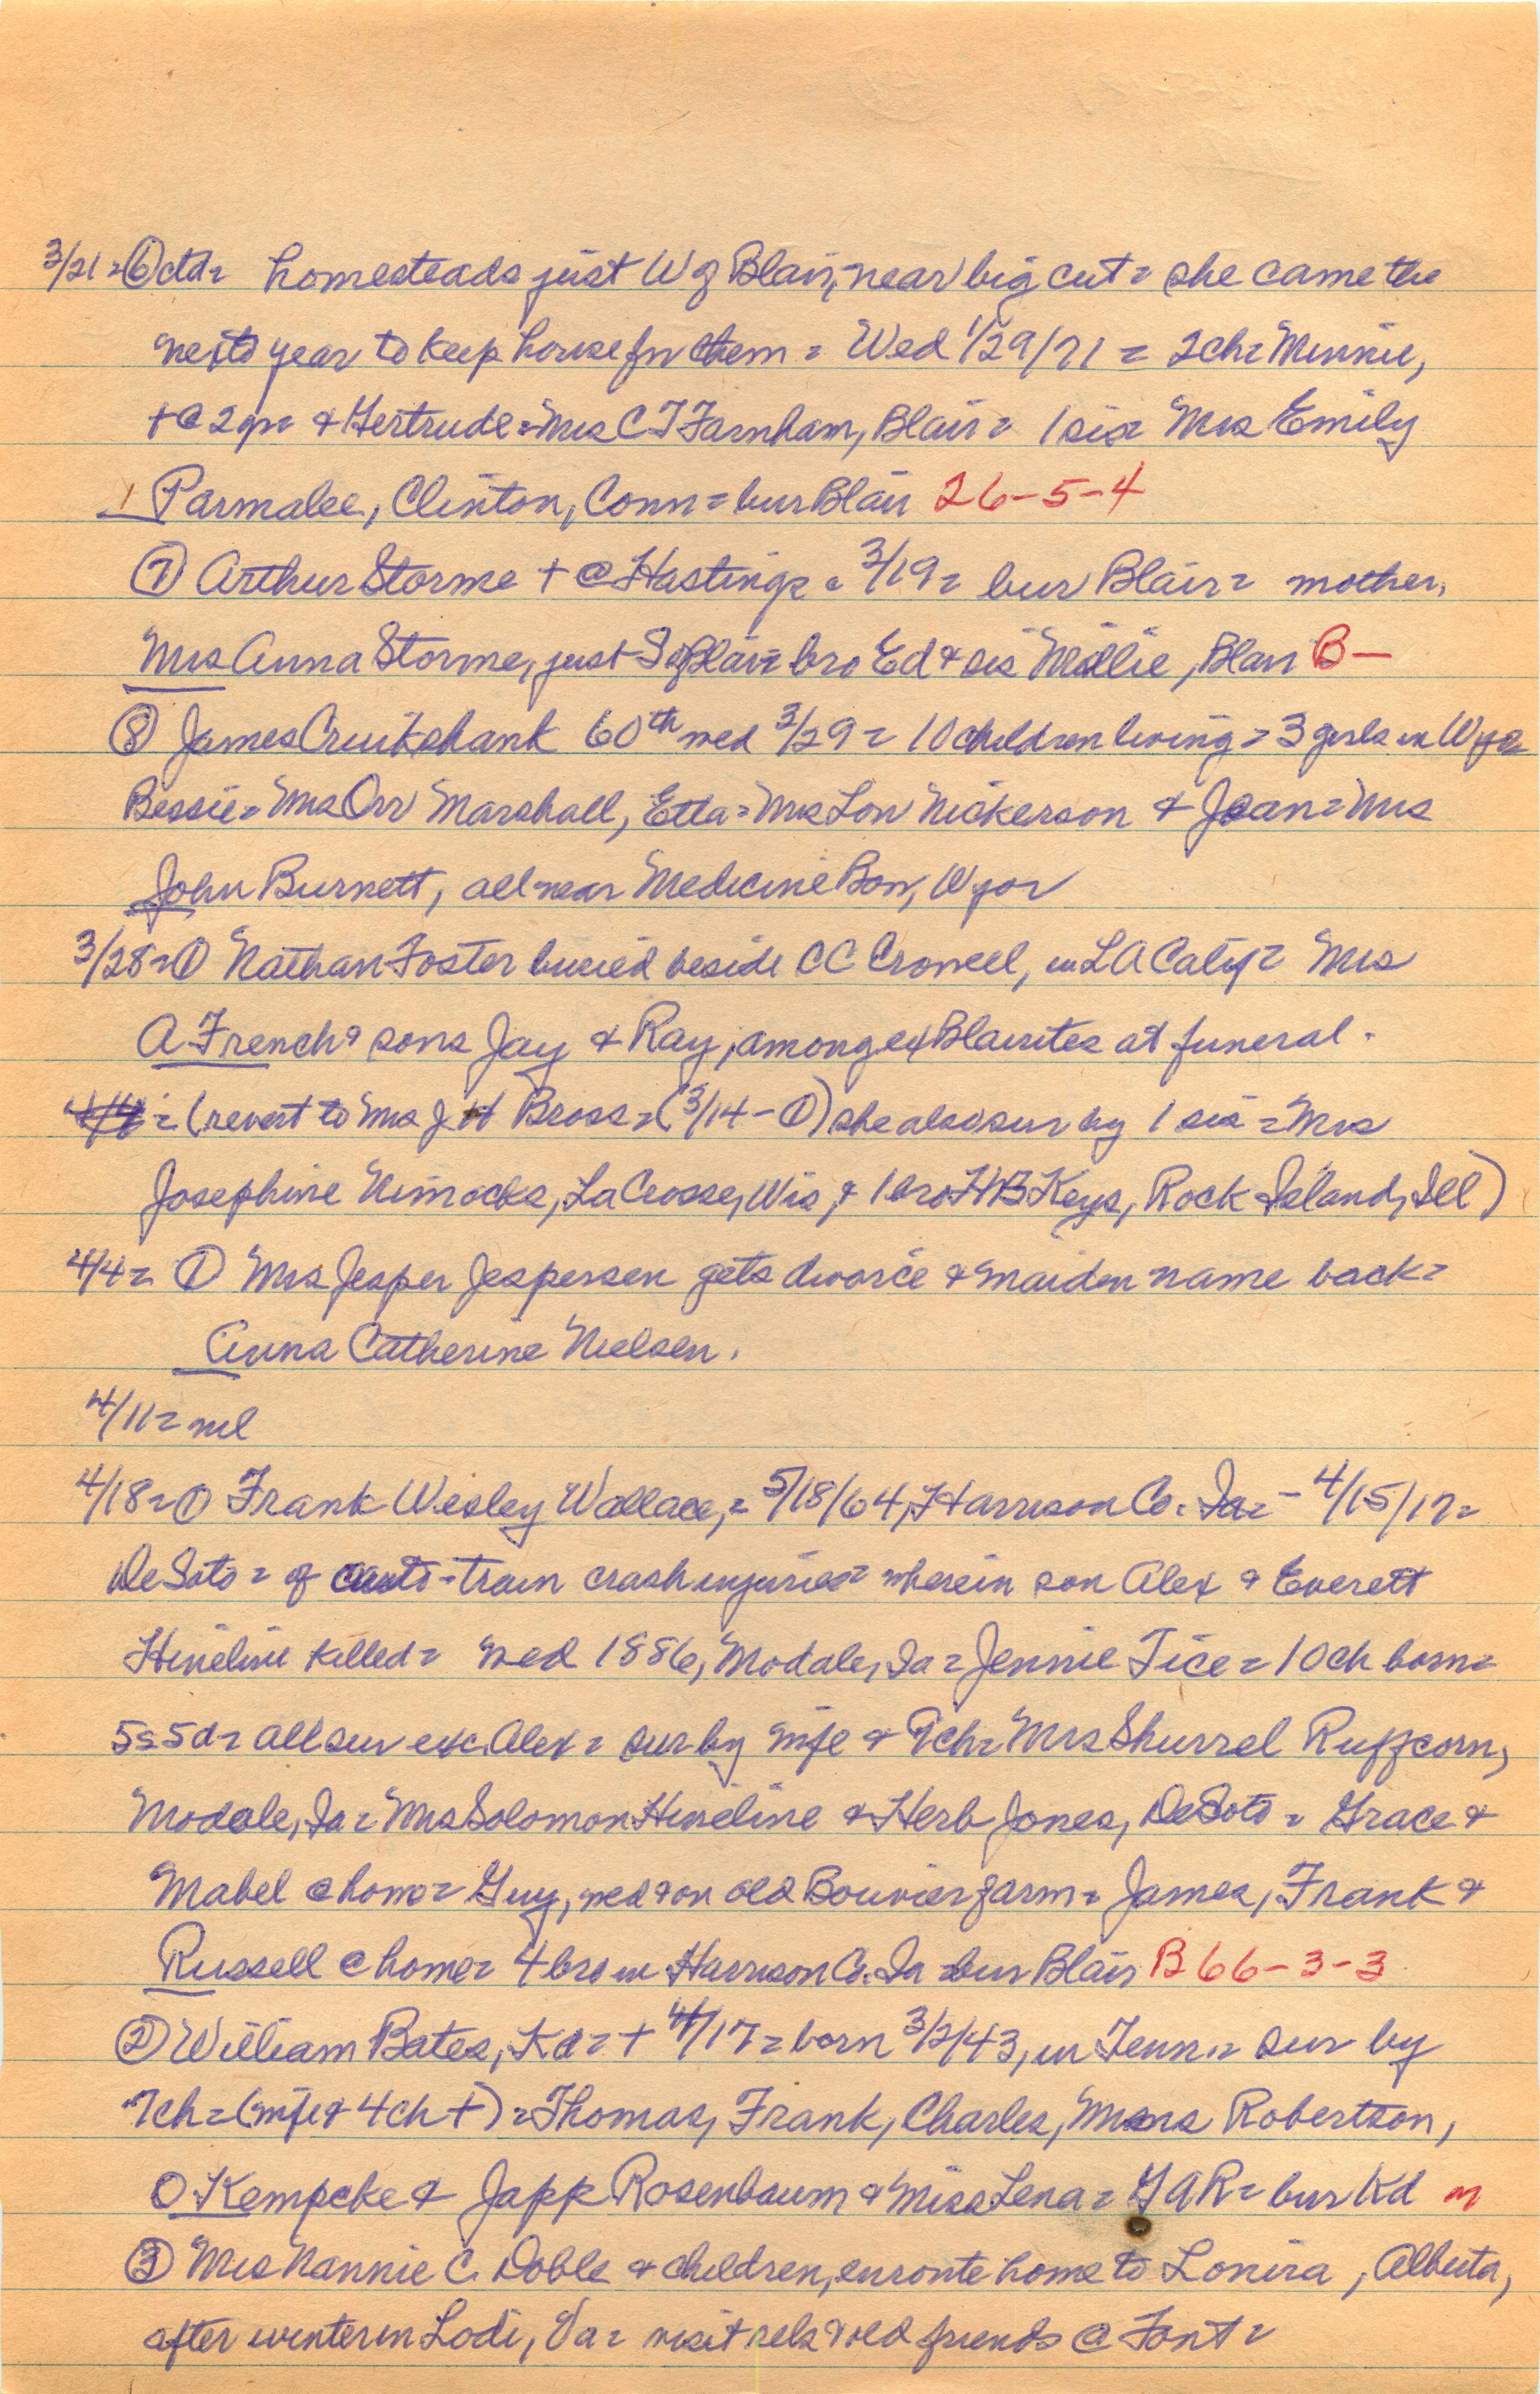 3/21= ⑥ ctd= homesteads just W of Blair, near big cut= she came the
next year to keep house for them = Wed 1/29/71 = 2ch= Minnie,
+@ 2yr= & Gertrude=Mrs C T Farnham, Blair= 1 sis= Mrs Emily
Parmalee, Clinton, Conn= bur Blair 26-5-4
⑦ Arthur Storme + @ Hastings = 3/19= bur Blair= mother,
Mrs Anna Storme, just S of Blair= bro Ed & sis Millie, Blair B—
⑧ James Cruikshank 60th wed 3/29= 10 children living= 3 girls in Wyo=
Bessie= Mrs Orr Marshall, Etta= Mrs Lon Nickerson & Jean= Mrs
John Burnett, all near Medicine Bow, Wyo=
3/28= ① Nathan Foster buried beside C C Crowell, in L A Calif= Mrs
A French & sons Jay & Ray, among ex Blairites at funeral.
4/4 = (revert to Mrs J H Bross= (3/14-①) she also sur by 1 sis = Mrs
Josephine Nimocks, LaCrosse, Wis, & 1 bro H B Keys, Rock Island, Ill)
4/4= ① Mrs Jesper Jespersen gets divorce & maiden name back=
Anna Catherine Nielsen.
4/11= nil
4/18= ① Frank Wesley Wallace,= 5/18/64, Harrison Co. Ia= - 4/15/17=
DeSoto= of auto-train crash injuries= wherein son Alex & Everett
Hineline killed= wed 1886, Modale, Ia= Jennie Tice= 10 ch born=
5s 5d= all sur exc. Alex= sur by wife & 9ch= Mrs Shurrel Ruffcorn,
Modale, Ia= Mrs Solomon Hineline & Herb Jones, DeSoto= Grace &
Mabel @ home= Guy, wed & on old Bouvier farm= James, Frank &
Russell @ home= 4 bro in Harrison Co. Ia= bur Blair B 66-3-3
② William Bates, Kd= + 4/17= born 3/2/43, in Tenn.= sur by
7ch= (wife & 4 ch +) = Thomas, Frank, Charles, Mmes Robertson,
O Kempcke & Japp Rosenbaum & Miss Lena= G A R= bur Kd m
③ Mrs Nannie C. Doble & children, enroute home to Lonira, Alberta,
after winter in Lodi, Va= visit rels & old friends @ Font=